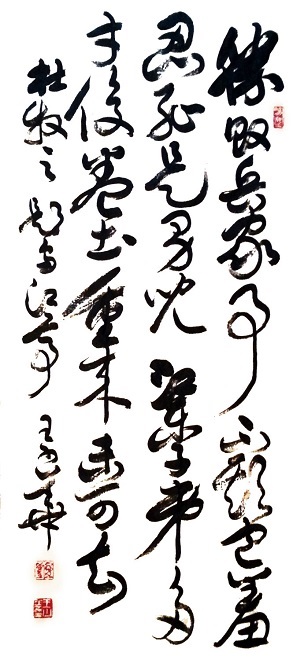 勝敗兵家事不期包羞
忍恥是男兒江東子弟多
才俊卷土重来未可知
杜牧之題烏江亭 王華